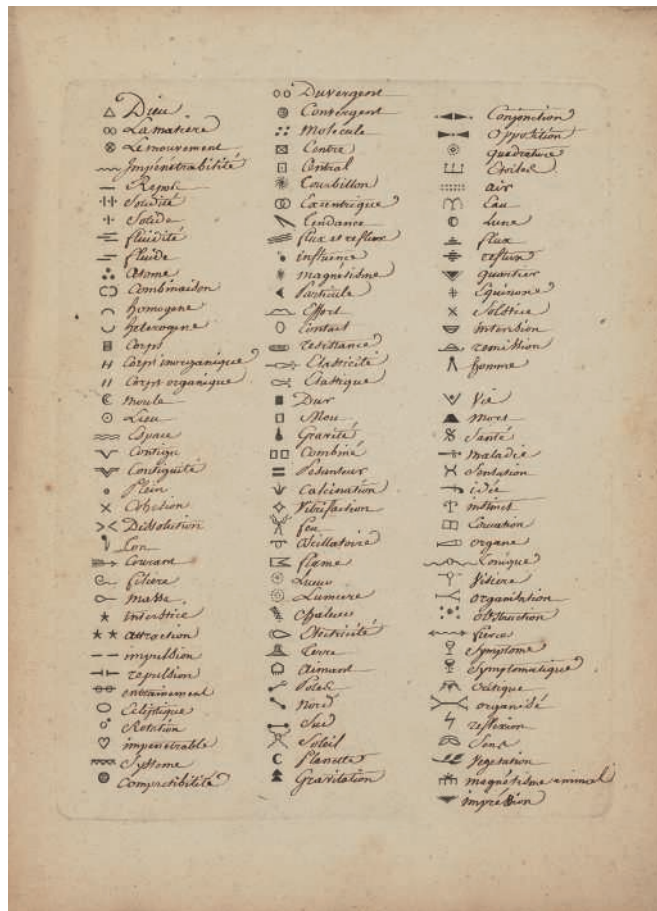 Dieu
La matière
Le mouvement
Impénétrabilité
Repos
Solidité
Solide
fluidité
fluide
atome
Combinaison
homogene
heterogene
Corps
Corps inorganique
Corps organique
moule
Lieu
Espace
Contigu
Contiguité
Plein
Cohésion
Dissolution
Ton
Courant
filiere
masse
interstice
attraction
impulsion
repulsion
entrainement
Ecliptique
Rotation
impénétrable
Systeme
Compressibilité
Duvergent
Convergent
molecule
Centre
Central
Tourbillon
Excentrique
Tendance
flux et reflux
influence
magnétisme
Particule
Effort
Contact
resistance
Elasticité
Elastique
Dur
Mou
Gravité
Combiné
Pesanteur
Calcination
Vitrifaction
feu
Oscillatoire
flame
Lueur
Lumiere
Chaleur
Electricité
Terre
Aimant
Poles
Nord
Sud
Soleil
Planette
Gravitation
Conjonction
Opposition
quadrature
Etoiles
air
Eau
Lune
flux
reflux
quartier
Equinoxe
Solstice
intension
remission
homme
Vie
mort
Santé
maladie
Sensation
idée
instinct
organe
Tonique
Visiere
organisation
obstruction
Symptome
Symptomatique
Critique
organisé
reflexion
Sens
Vegetation
magnétisme animal
impréssion